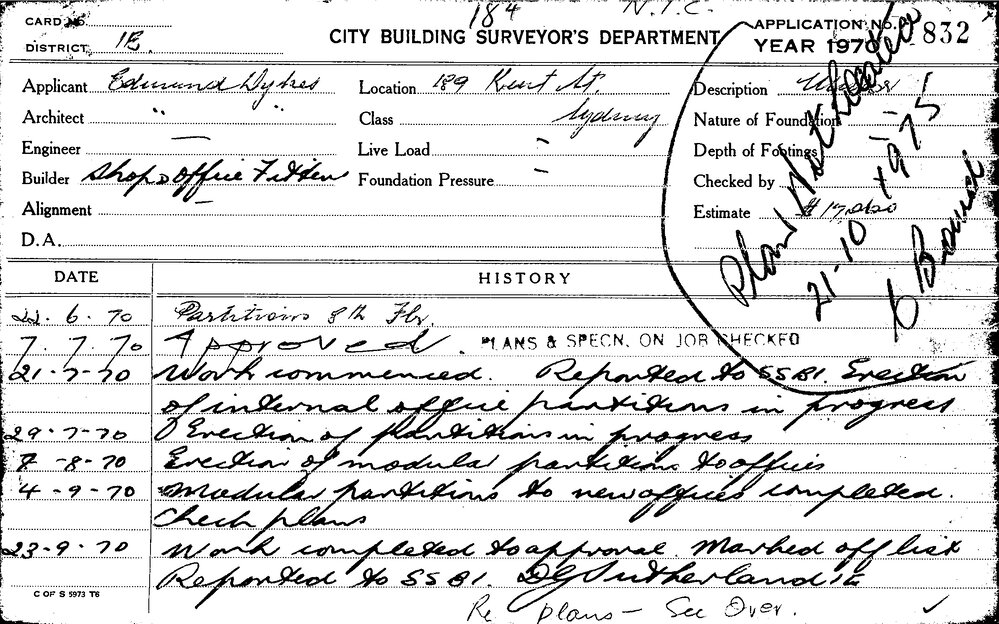 184 N.I.C.
CARD No.
DISTRICT 1E
CITY BUILDING SURVEYOR'S DEPARTMENT
APPLICATION No. 832
YEAR 1970
Applicant Edmund Dykes
Location 189 Kent St.
Description
Architect " "
Class Sydney
Nature of Foundation —
Engineer —
Live Load -
Depth of Footings
Builder Shop & Office Fitters
Foundation Pressure -
Checked by
Alignment —
Estimate $ 17,000
D.A.
Plans Not
21-10-1975
DATE HISTORY
22. 6. 70 Partitions 8th Flr.
7. 7. 70 Approved. PLANS & SPECN. ON JOB CHECKED
21-7-70 Work commenced. Reported to SSBI. Erection
of internal office partitions in progress
29-7-70 Erection of partitions in progress
7-8-70 Erection of modular partitions to offices
4-9-70 Modular partitions to new offices completed.
Check plans
23-9-70 Work completed to approval. Marked off list
Reported to SSBI. DG Sutherland 1E
C OF S 5973 T6
Re plans — See Over. ✓